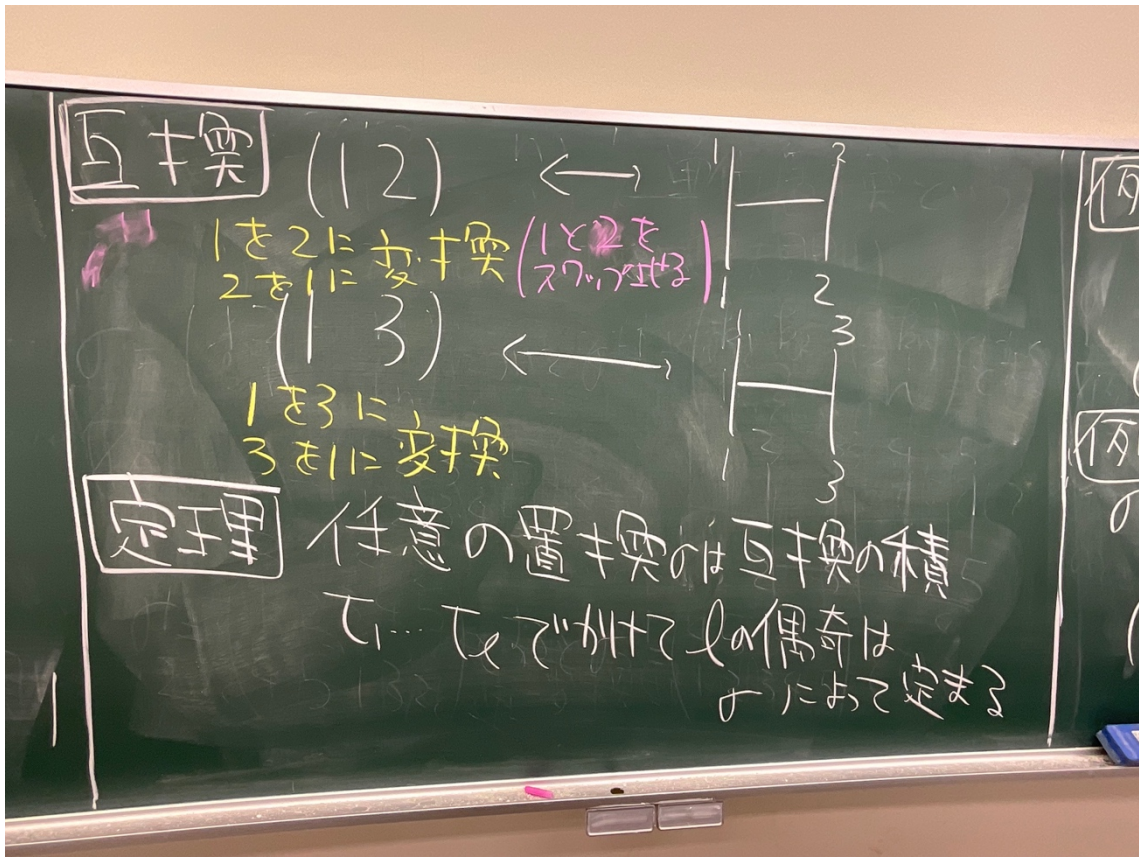 互換 (12) ↔ 1 2
1 2
1を2に
2を1に変換
(1と2を
スワップさせる)
(1 3) ↔ 1 3
1 3
1を3に
3を1に変換
定理 任意の置換σは互換の積
τ₁…τℓでかけてℓの偶奇は
σによって定まる
例
例
σ